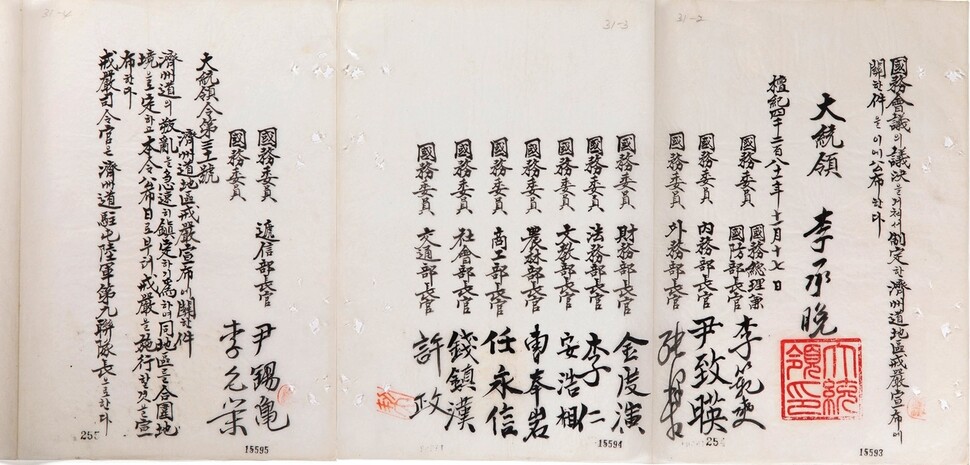 31-2
國務會議의 議決을거쳐서 制定한 濟州道地區戒嚴宣布에
關한件을 이에 公布한다
大統領 李承晩
大統領印
檀紀四千二百八十一年 十一月 十七日
國務委員 國務總理兼
國防部長官 李範奭
國務委員 內務部長官 尹致暎
國務委員 外務部長官
254
15593
31-3
國務委員 財務部長官 金度演
國務委員 法務部長官 李仁
國務委員 文敎部長官 安浩相
國務委員 農林部長官 曺奉岩
國務委員 商工部長官 任永信
國務委員 社會部長官 錢鎮漢
國務委員 交通部長官 許政
15594
31-4
國務委員 遞信部長官 尹錫龜
國務委員 李允榮
大統領令第三十一號
濟州道地區戒嚴宣布에關한件
濟州道의 叛亂을 急速히 鎮定하기 爲하여 同地區를 合圍地
境으로 定하고 本令 公布日로부터 戒嚴을 施行할것을 宣
布한다
戒嚴司令官은 濟州道駐屯陸軍第九聯隊長으로한다
255
15595